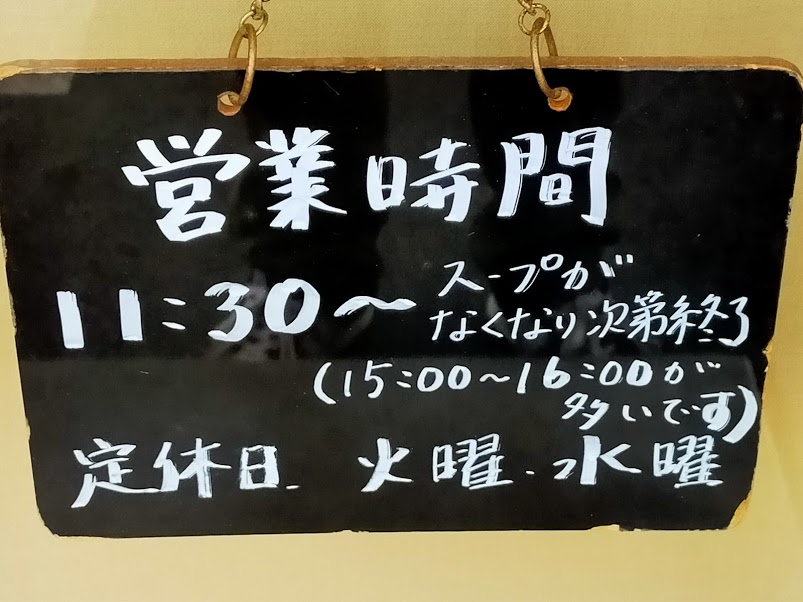 営業時間
11:30〜 スープが
なくなり次第終了
(15:00〜16:00が
多いです)
定休日 火曜・水曜